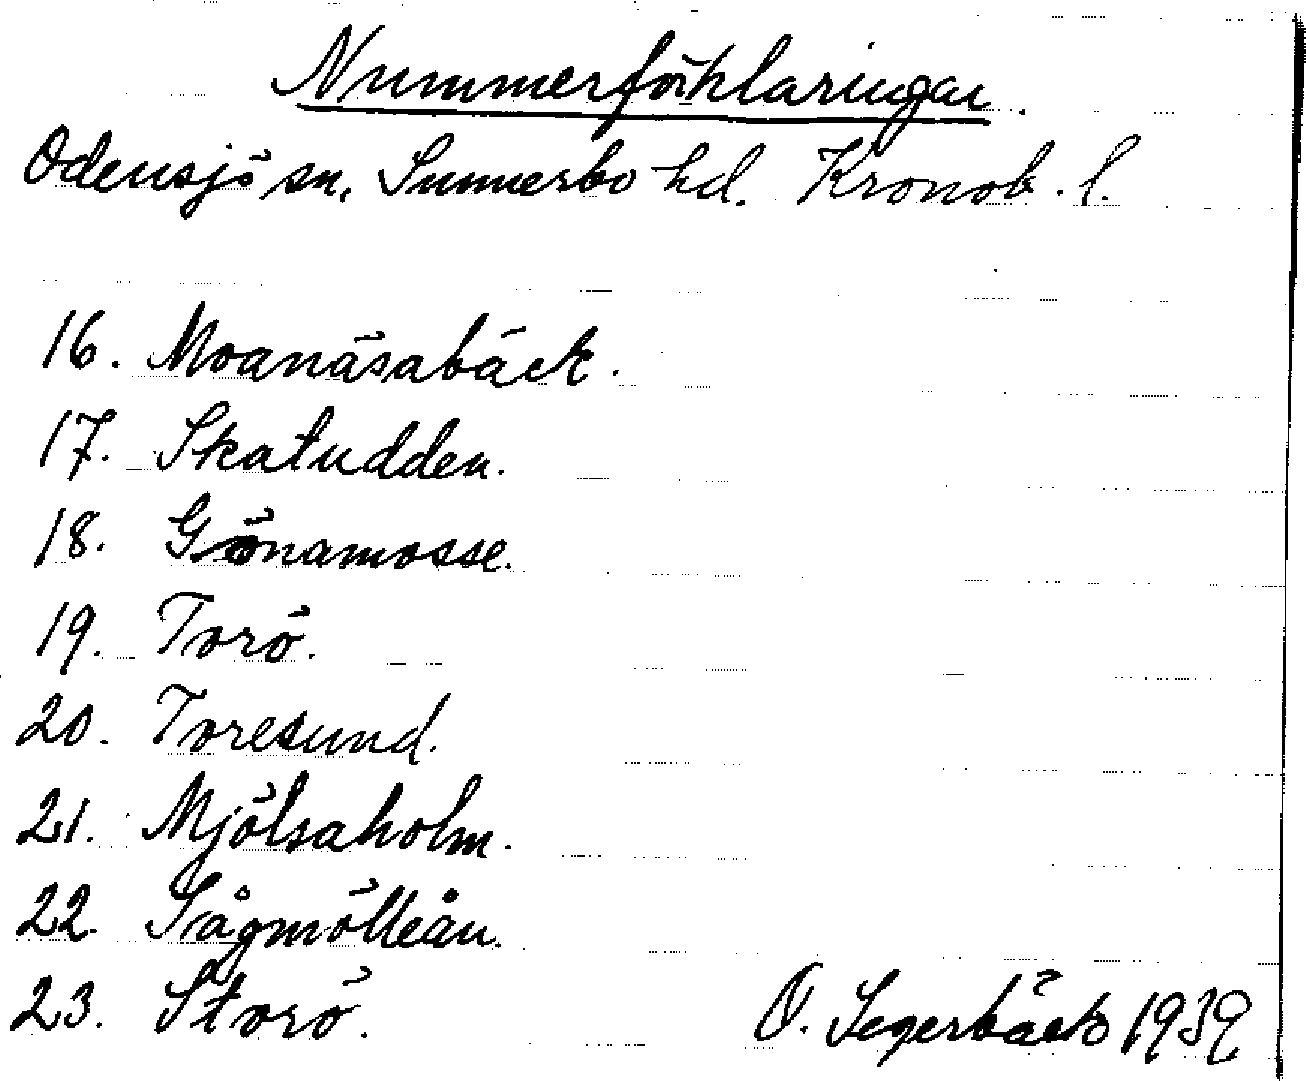 Nummerförklaringar.
Odensjö sn. Sunnerbo hd. Kronob. l.
16. Moanäsabäck.
17. Skatudden.
18. Gönamosse.
19. Torö.
20. Toresund.
21. Mjölsaholm.
22. Sågmölleån.
23. Storö.
O. Segerbäck 1939